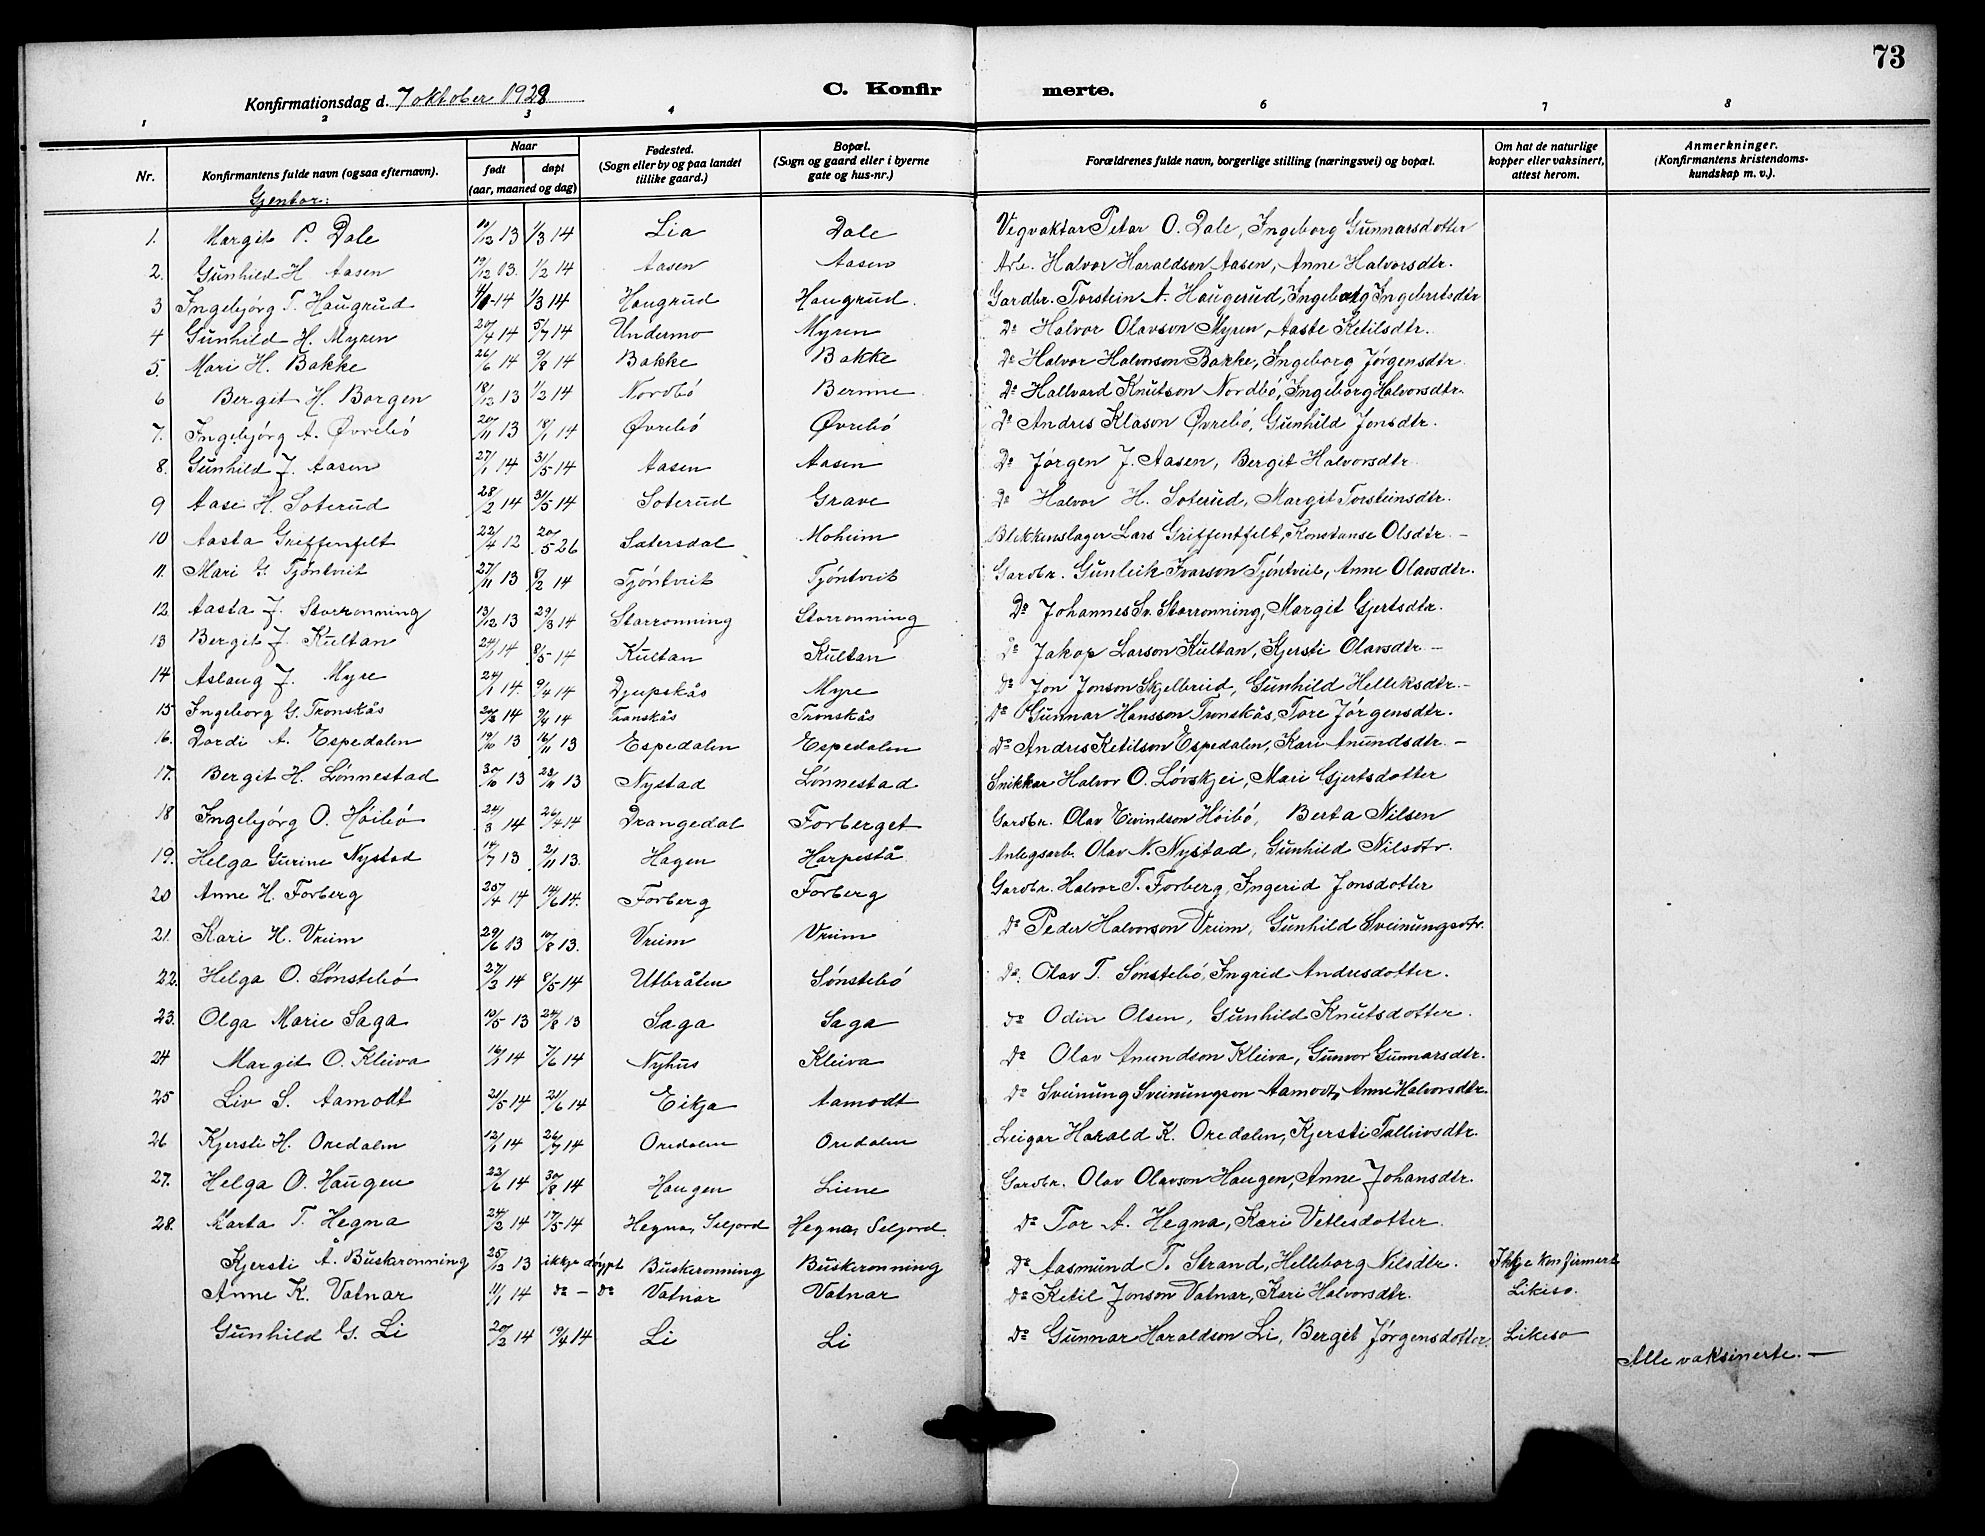 73
Konfirmationsdag d. 7 oktober 1928 C. Konfirmerte.
1 2 3 4 6 7 8
Nr. Konfirmantens fulde navn (ogsaa efternavn). Naar født døpt (aar, maaned og dag) Fødested. (Sogn eller by og paa landet tillike gaard.) Bopæl. (Sogn og gaard eller i byerne gate og hus-nr.) Forældrenes fulde navn, borgerlige stilling (næringsvei) og bopæl. Om hat de naturlige kopper eller vaksinert, attest herom. Anmerkninger. (Konfirmantens kristendomskundskap m. v.).
Gjentor:
1. Margit P. Dale 10/12 13 1/3 14 Lia Dale Vegvaktar Petar O. Dale, Ingeborg Gunnarsdotter
2. Gunhild H. Aasen 19/12 03. 1/2 14 Aasen Aasen Arb. Halvor Haraldson Aasen, Anne Halvorsdtr.
3 Ingebjørg T. Haugrud 14 1/3 14 Haugrud Haugrud. Gardbr. Torstein A. Haugerud, Ingeborg Ingebretsdtr
4 Gunhild H. Myren 20/4 14 5/7 14 Undermo Myren Do Halvor Olavson Myren, Aaste Ketilsdtr.
5. Mari H. Bakke 26/6 14 9/8 14 Bakke Bakke Do Halvor Halvorson Bakke, Ingeborg Jørgensdtr.
6 Bergit H. Borgen 18/12 13 1/2 14 Nordbó Do Hallvard Knutson Nordbó, Ingeborg Halvorsdtr.
7. Ingebjórg A. Øvrebó 20/11 13 18/1 14 Øvrebó Øvrebó Do Andres Klason Øvrebó, Gunhild Jonsdtr.
8. Gunhild J. Aasen 27/1 14 31/5 14 Aasen Aasen Do Jørgen J. Aasen, Bergit Halvorsdtr
9 Aase H. Soterud 28/2 14 31/5 14 Soterud Grave Do Halvor H. Soterud, Margit Torsteinsdtr.
10 Aasta Griffenfelt 22/4 12 20/5 26 Satersdal Moheim Blikkenslager Lars Griffentfelt, Konstanse Olsdtr. -
11. Mari G. Tjóntveit 27/11 13 8/2 14 Tjóntveit Tjóntveit Gardbr. Gunleik Ivarson Tjóntveit, Anne Olavsdtr.
12. Aasta J. Storronning 13/12 13 29/3 14 Storronning Storronning Do Johannes Sv. Storronning, Margit Gjertsdtr.
13 Bergit J. Kultan 24/1 14 8/5 14 Kultan Kultan Do Jakop Larson Kultan, Kjersti Olavsdtr. -
14 Aslaug J. Myre 24/1 14. 9/4 14 Djupskås Myre Do Jon Jonson Skjelbreid, Gunhild Helleksdtr. -
15 Ingeborg G. Tronskås 20/3 14 14 Tronskås Tronskås Do Gunnar Hansson Tronskås, Tore Jørgensdtr.
16. Dordi A. Espedalen 19/10 13 16/11 13 Espedalen Espedalen Do Andres Ketilson Espedalen, Kari Anundsdtr. -
17. Bergit H. Lónnestad 30/10 13 23/11 13 Nystad Lónnestad Snikkar Halvor O. Lóvskjei, Mari Gjertsdotter
18 Ingebjórg O. Hóibó 24/3 14 26/4 14 Drangedal Forberget Gardbr. Olav Eivindson Hóibó, Berta Nilsen
19. Helga Gurine Nystad 14/7 13 2/11 13. Hagen Harpestå Anlegsarb. Olav N. Nystad, Gunhild Nilsdtr.
20 Anne H. Forberg 25/4 14 14/6 14. Forberg Forberg Gardbr. Halvor T. Forberg, Ingerid Jonsdotter
21. Kari H. Vreim 29/6 13 10/8 13. Vreim Vreim Do Peder Halvorson Vreim, Gunhild Sveinungsdtr.
22. Helga O. Sónstebó 27/3 14 8/5 14 Utbråten Sónstebó Do. Olav T. Sónstebó, Ingrid Andresdotter.
23. Olga Marie Saga 10/5 13 24/8 13 Saga Saga do Odin Olsen, Gunhild Knutsdotter.
24 Margit O. Kleiva 16/2 14 7/6 14 Nyhus Kleiva Do Olav Anundson Kleiva, Gunvor Gunnarsdtr.
25 Liv S. Aamodt 21/5 14 21/6 14 Eikja Aamodt Do Sveinung Sveinungson Aamodt, Anne Halvorsdtr.
26 Kjersti H. Oredalen 12/1 14 26/7 14 Oredalen Oredalen Leigar Harald K. Oredalen, Kjersti Talleivsdtr.
27. Helga O. Haugen 23/6 14 30/8 14 Haugen Liene Gardbr. Olav Olavson Haugen, Anne Johansdtr.
28. Marta T. Hegna 24/2 14 17/5 14 Hegna, Seljord Hegna, Seljord. Do Tor A. Hegna, Kari Vetlesdotter
Kjersti Å. Buskeronning 25/12 13 ikkje dóypt Buskeronning Buskeronning Do Aasmund T. Strand, Helleborg Nilsdtr. Ikkje konfirmert
Anne K. Vatnar 11/1 14 do - do Vatnar Vatnar Do Ketil Jonson Vatnar, Kari Halvorsdtr. Likeso.
Gunhild G. Li 20/2 14 19/4 14 Li Li Do Gunnar Haraldson Li, Bergit Jørgensdotter. Likeso
Alle vaksinerte. -